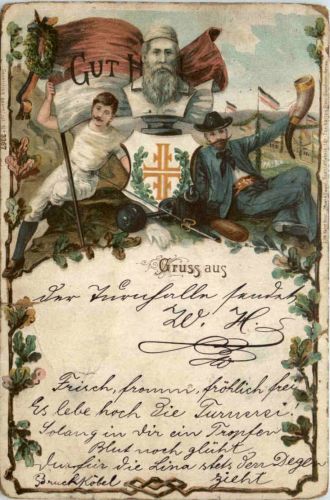 GUT H
Gruss aus
der Turnhalle sendet
W. H.
Frisch, fromm, fröhlich frei
Es lebe hoch die Turnerei.
Solang in dir ein Tropfen
Blut noch glüht
die Lina stets den Degen
Bruchköbel zieht